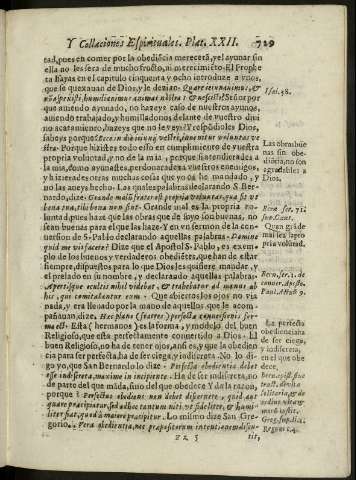 Y Collaciones Espirituales. Plat. XXII. 729
tad, pues en comer por la obediẽcia merecerà, y el ayunar sin
ella no les sera de mucho fructo, ni merecimiẽto. El Prophe
ta Isayas en el capitulo cinquenta y ocho introduze a vnos,
que se quexauan de Dios, y le deziã: Quare ieiunauimus, &
nõ aspexisti: humiliauimus animas nostras, & nescisti? Señor por
que auiendo ayunado, no hazeys caso de nuestros ayunos,
auiendo trabajado, y humilladonos delante de vuestro diui
no acatamiẽto, hazeys que no lo veys? Y respõdioles Dios,
sabeys porque? Ecce in die ieiunij vestri, inuenitur voluntas ve
stra. Porque hizistes todo esso en cumplimiento de vuestra
propria voluntad, y no de la mia, porque si atendierades a
la mia, como ayunastes, perdonarades a vuestros enemigos,
y hizierades otras muchas cosas que yo os he mandado, y
no las aueys hecho. Las quales palabras declarando S. Ber-
nardo, dize: Grande malũ fratres est propria volũtas, qua fit vt
bona tua, tibi bona non sint. Grande mal es la propria vo-
lũtad, pues haze que las obras que de suyo son buenas, no
sean buenas para el que las haze. Y en vn sermon de la con-
uersion de S. Pablo declarando aquellas palabras. Domine
quid me vis facere? Dize que el Apostol S. Pablo, es exem-
plo de los buenos y verdaderos obediẽtes, que han de estar
siempre, dispuestos para lo que Dios les quisiere mandar, y
el prelado en su nombre, y declarando aquellas palabras.
Apertisque oculis nihil videbat, & trahebatur ad manus ab
his, qui comitabantur eum. Que abiertos los ojos no via
nada, y era lleuado por la mano de aquellos que le acom-
pañauan, dize. Hæc planè (fratres) perfectæ conuersionis for-
ma est. Esta (hermanos) es la forma, y modelo, del buen
Religioso, que esta perfectamente conuertido a Dios. El
buen Religioso, no ha de tener ojos, antes, y que la obedien
cia para ser perfecta, ha de ser ciega, y indiscreta. No lo di-
go yo, que San Bernardo lo dize. Perfecta obedientia debet
esse indiscreta, maxime in incipiente. Ha de ser indiscreta, no
de parte del que mãda, sino del que obedece Y da la razon,
porque? Perfectus obediens non debet discernere, quid aut
quare præcipiatur, sed ad hoc tantum niti, vt fideliter, & humi-
liter fiat, quod à maiore præcipitur. Lo mismo dize San Gre-
gorio. Vera obedientia, nec præpositorum intentionem discu-
Zz 5 tit,
Isai. 58.
Las obras bue
nas sin obe-
diẽcia, no son
agradables a
Dios.
Bern. ser. 71.
sup. Cant.
Quan grã de
mal es la pro
pria volũtad.
Bern. ser. 1. de
conuer. Aposto.
Paul. Actu. 9.
La perfecta
obediencia ha
de ser ciega,
y indiscreta,
en el que obe
dece.
Gregor. sup. li. 1.
Regum c. 4.